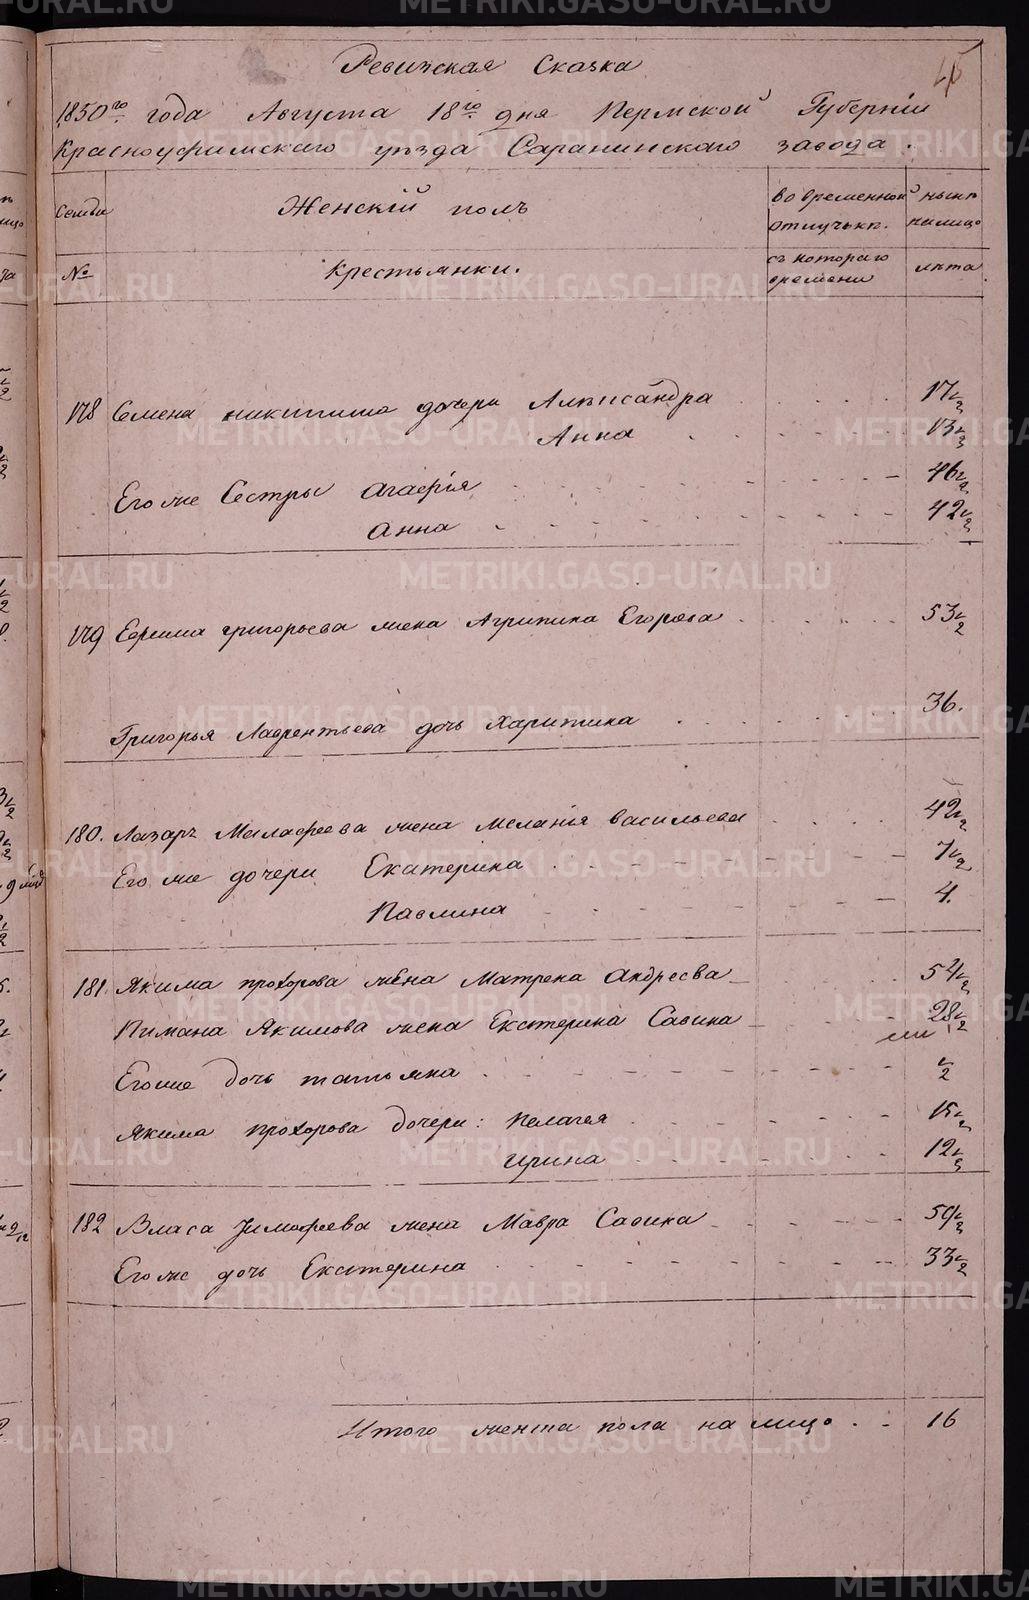 Ревизская Сказка
45
1850го года Августа 18го дня Пермской Губерніи
Красноуфимскаго уѣзда Саранинскаго завода.
Семьи Женскій полъ во временной отлучькѣ. нынѣ налицо
№ Крестьянки. съ котораго времени лѣта.
178 Семена никитина дочери Александра 17 1/2
Анна 13 1/2
Его же Сестры Агафія 46 1/2
Анна 42 1/2
179 Ефима григорьева жена Агрипина Егорова 53 1/2
Григорья Лаврентьева дочь Харитина 36.
180. Лазарь Малафеева жена Меланія васильева 42 1/2
Его же дочери Екатерина 7 1/2
Павлина 4.
181. Якима прохорова жена Матрена андреева 54 1/2
Пимана Якимова жена Екатерина Савина 28 1/2
Егоже дочь татьяна 1/2
Якима прохорова дочери: пелагея 15 1/2
ирина 12 1/2
182 Власа Тимофеева жена Мавра Савина 59 1/2
Его же дочь Екатерина 33 1/2
Итого женска пола на лицо 16
METRIKI.GASO-URAL.RU